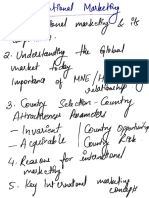 national Marketing
national marketing & its
2. Understanding the Global
market today
Importance of MNE/H
relationship
3. Country Selection - Country
Attractiveness Parameters
- Invarient | Country Opportunity
- Acquirable | Country Risk
4. Reasons for international
marketing
5. Key International marketing
concepts